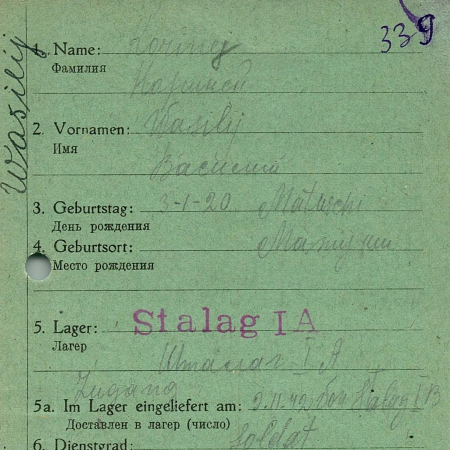 339
Wasilij
1. Name:
Фамилия
2. Vornamen: Wasilij
Имя
Василий
3. Geburtstag: 3-1-20
День рождения
4. Geburtsort:
Место рождения
5. Lager: Stalag I A
Лагерь
Шталаг I A
Zugang
5a. Im Lager eingeliefert am: 9.11.42 von Stalag I B
Доставлен в лагерь (число)
6. Dienstgrad: Soldat